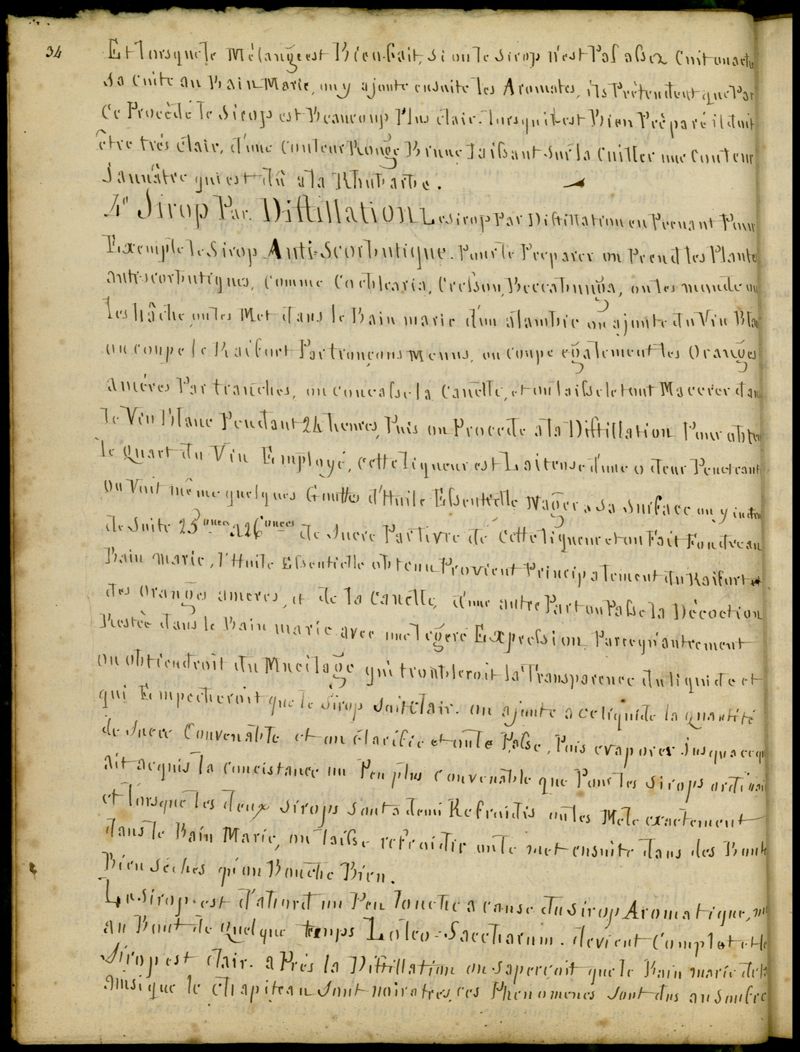 34
Et lorsque le Mélange est Bien fait, si on le sirop n'est Pas assez Cuit on ach
Sa Cuite au Bain Marie, on y ajoute ensuite les Aromates, ils Prétendent que Par
Ce Procédé le Sirop est Beaucoup Plus clair. lorsqu'il est Bien Préparé il doit
être très Clair, d'une Couleur Rouge Brune laissant sur la Cuiller une Couleur
Jaunâtre qui est dû a la Rhubarbe.
4° Sirop Par Distillation Le sirop Par Distillation en Prenant Pour
Exemple le Sirop Anti-Scorbutique. Pour le Preparer on Prend les Plante
anti-scorbutiques, Comme Cochlearia, Cresson, Beccabunga, on les monde on
les hâche, on les Met dans le Bain marie d'un alambic on ajoute du Vin Bla
on coupe le Raifort Par tronçons Menus, on Coupe également les Oranges
amères Par tranches, on concasse la Canelle, et on laisse le tout Macerer dan
le Vin Blanc Pendant 24 heures, Puis on Procede a la Distillation Pour obte
le quart du Vin Employé, cette liqueur est Laiteuse d'une odeur Penetrant
On Voit même quelques Gouttes d'Huile Essentielle Nager a Sa Surface on y
de Suite 25 onces a 26 onces de Sucre Par livre de Cette liqueur et on Fait Fondre au
Bain Marie, l'Huile Essentielle obtenu Provient Principalement du Raifort et
des Oranges ameres, et de la Canelle, d'une autre Part on Passe la Décoction
Restée dans le Bain marie avec une legère Expression Parcequ'autrement
on obtiendroit du Mucilage qui troubleroit la Transparence du liquide et
qui Empecheroit que le Sirop soit Clair. on ajoute a ce liquide la quantité
de Sucre Convenable et on clarifie et on le Passe, Puis evaporer Jusqu'a ceq
ait acquis la concistance un Peu plus Convenable que Pour les Sirops ordinai
et lorsque les deux Sirops sont a demi Refroidis on les Mele exactement
dans le Bain Marie, on laisse refroidir on le met ensuite dans des Boute
Bien Sèches qu'on Bouche Bien.
Le sirop est d'abord un Peu louche a cause du Sirop Aromatique,
au Bout de Quelque temps Loleo-Saccharum. devient Complet et le
Sirop est Clair. a Près la Distillation on sapercoit que le Bain marie de
ainsi que le Chapiteau Sont noiratres, ces Phenomenes Sont dus au Soufre